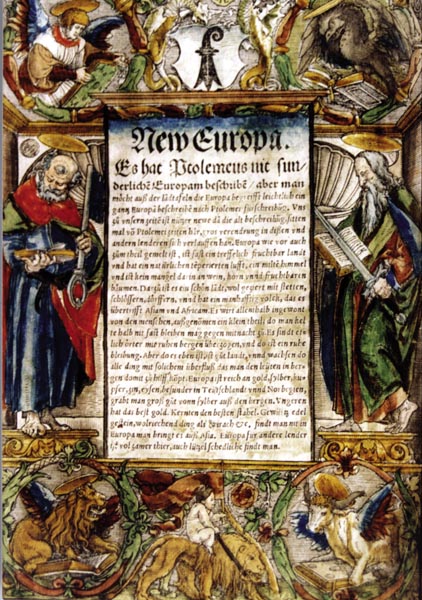 New Europa.
Es hat Ptolemeus nit sun-
derlichē Europam beschribē / aber man
möcht auß der lādtafeln die Europa begreifft leichtlich ein
gang Europā beschreibē nach Ptolemei fürschreibūg. Vns
zů vnsern zeitē ist nützer newe dā die alt beschreibūg hattē
mal vō Ptolemei zeiten hār, gros verendrung in disen vnd
andern lenderen sich verlauffen hatt. Europa wie vor auch
zům theil gemelt ist, ist fast ein trefflich fruchtbar landt
vnd hat ein natürlichen tēperierten lufft, ein miltē himmel
vnd ist kein mangel da in an wein, korn vnnd fruchtbarn
bäumen. Darzů ist es ein schön lādt, wol geziert mit stetten,
schlössern, dörffern, vnnd hat ein manhafftig volck, das es
übertrifft Asiam vnd Africam. Es wirt allenthalb ingewont
von den menschen, außgenommen ein klein theil: do man kel
te halb mit sast bleiben mag gegen mitnacht zů. Es sindt et
lich örter mit ruhen bergen überzogen, vnd do ist ein ruhe
bleibung. Aber do es eben ist, ist es gůt landt, vnnd wachsen do
alle ding mit solichem überfluß das man den leüten in ber-
gen damit zů hilff kōpt. Europa ist reich an gold, sylber, kup-
fer, zin, eysen, besunder in Teütschlandt vnnd Norbegien,
grabt man groß gůt vonn sylber auß den bergen. Vngeren
hat das best gold. Kernten den besten stahel. Gewürtz edel
gestein, wolriechend ding als Wirach &c, findt man nit in
Europa man bringt es auß Asia. Europa für andere lender
ist vol zamer thier, auch lützel schedliche findt man.